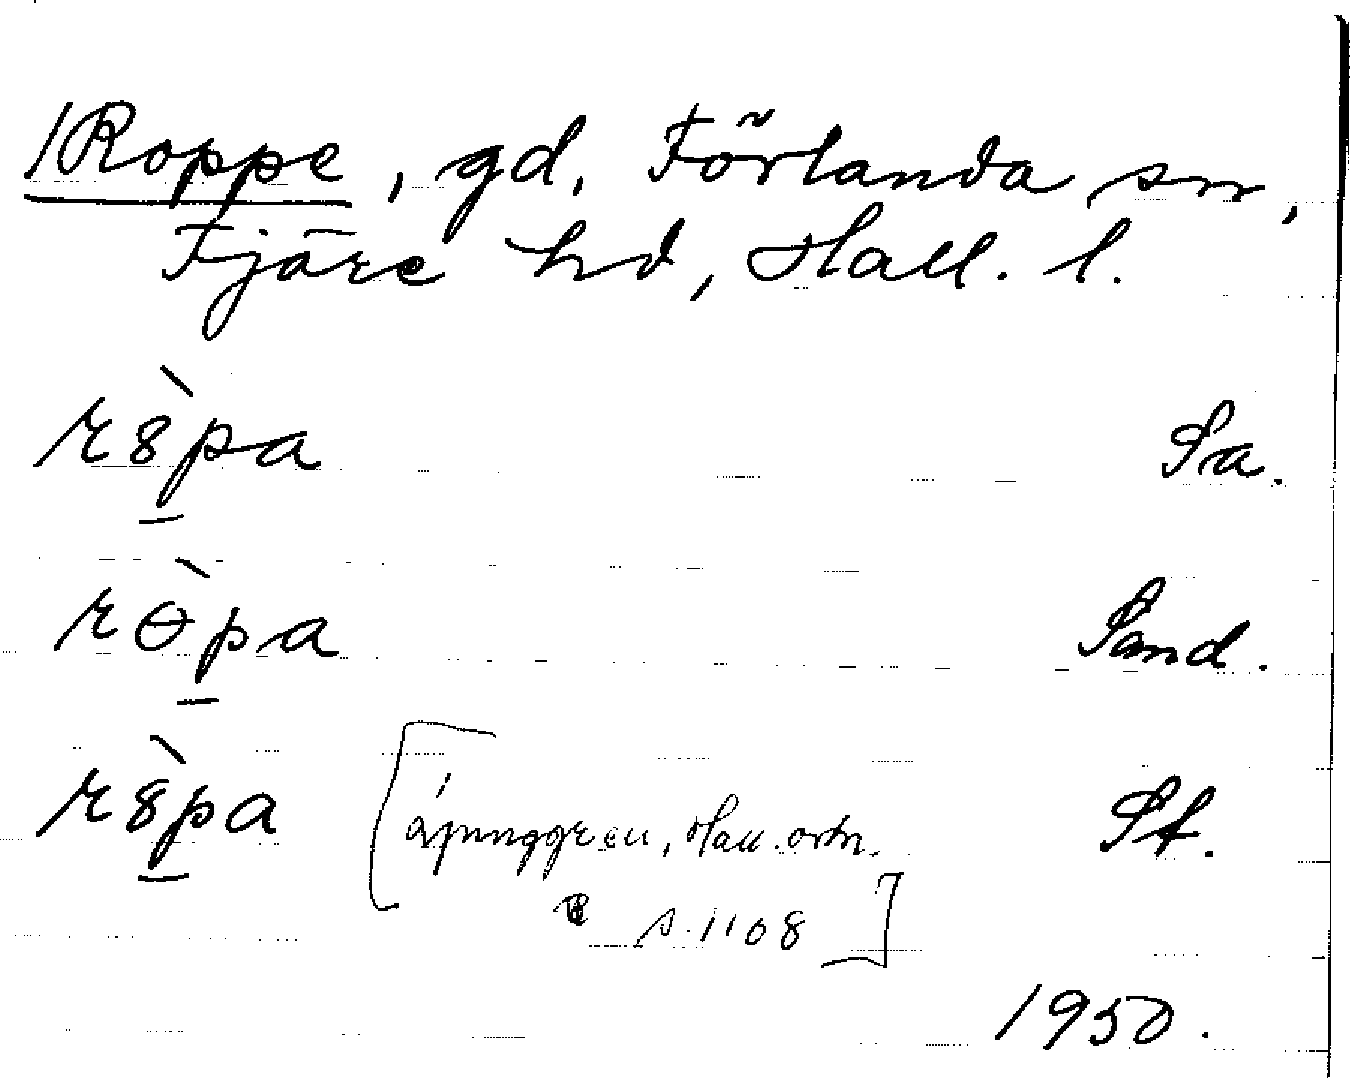 /Roppe, gd, Förlanda sn,
Fjäre hd, Hall. l.
rȣ̀pa Sa.
rɵ̀pa Sand.
rȣ̀pa [Ljunggren, Hall. ortn. St.
s. 1108]
1950.